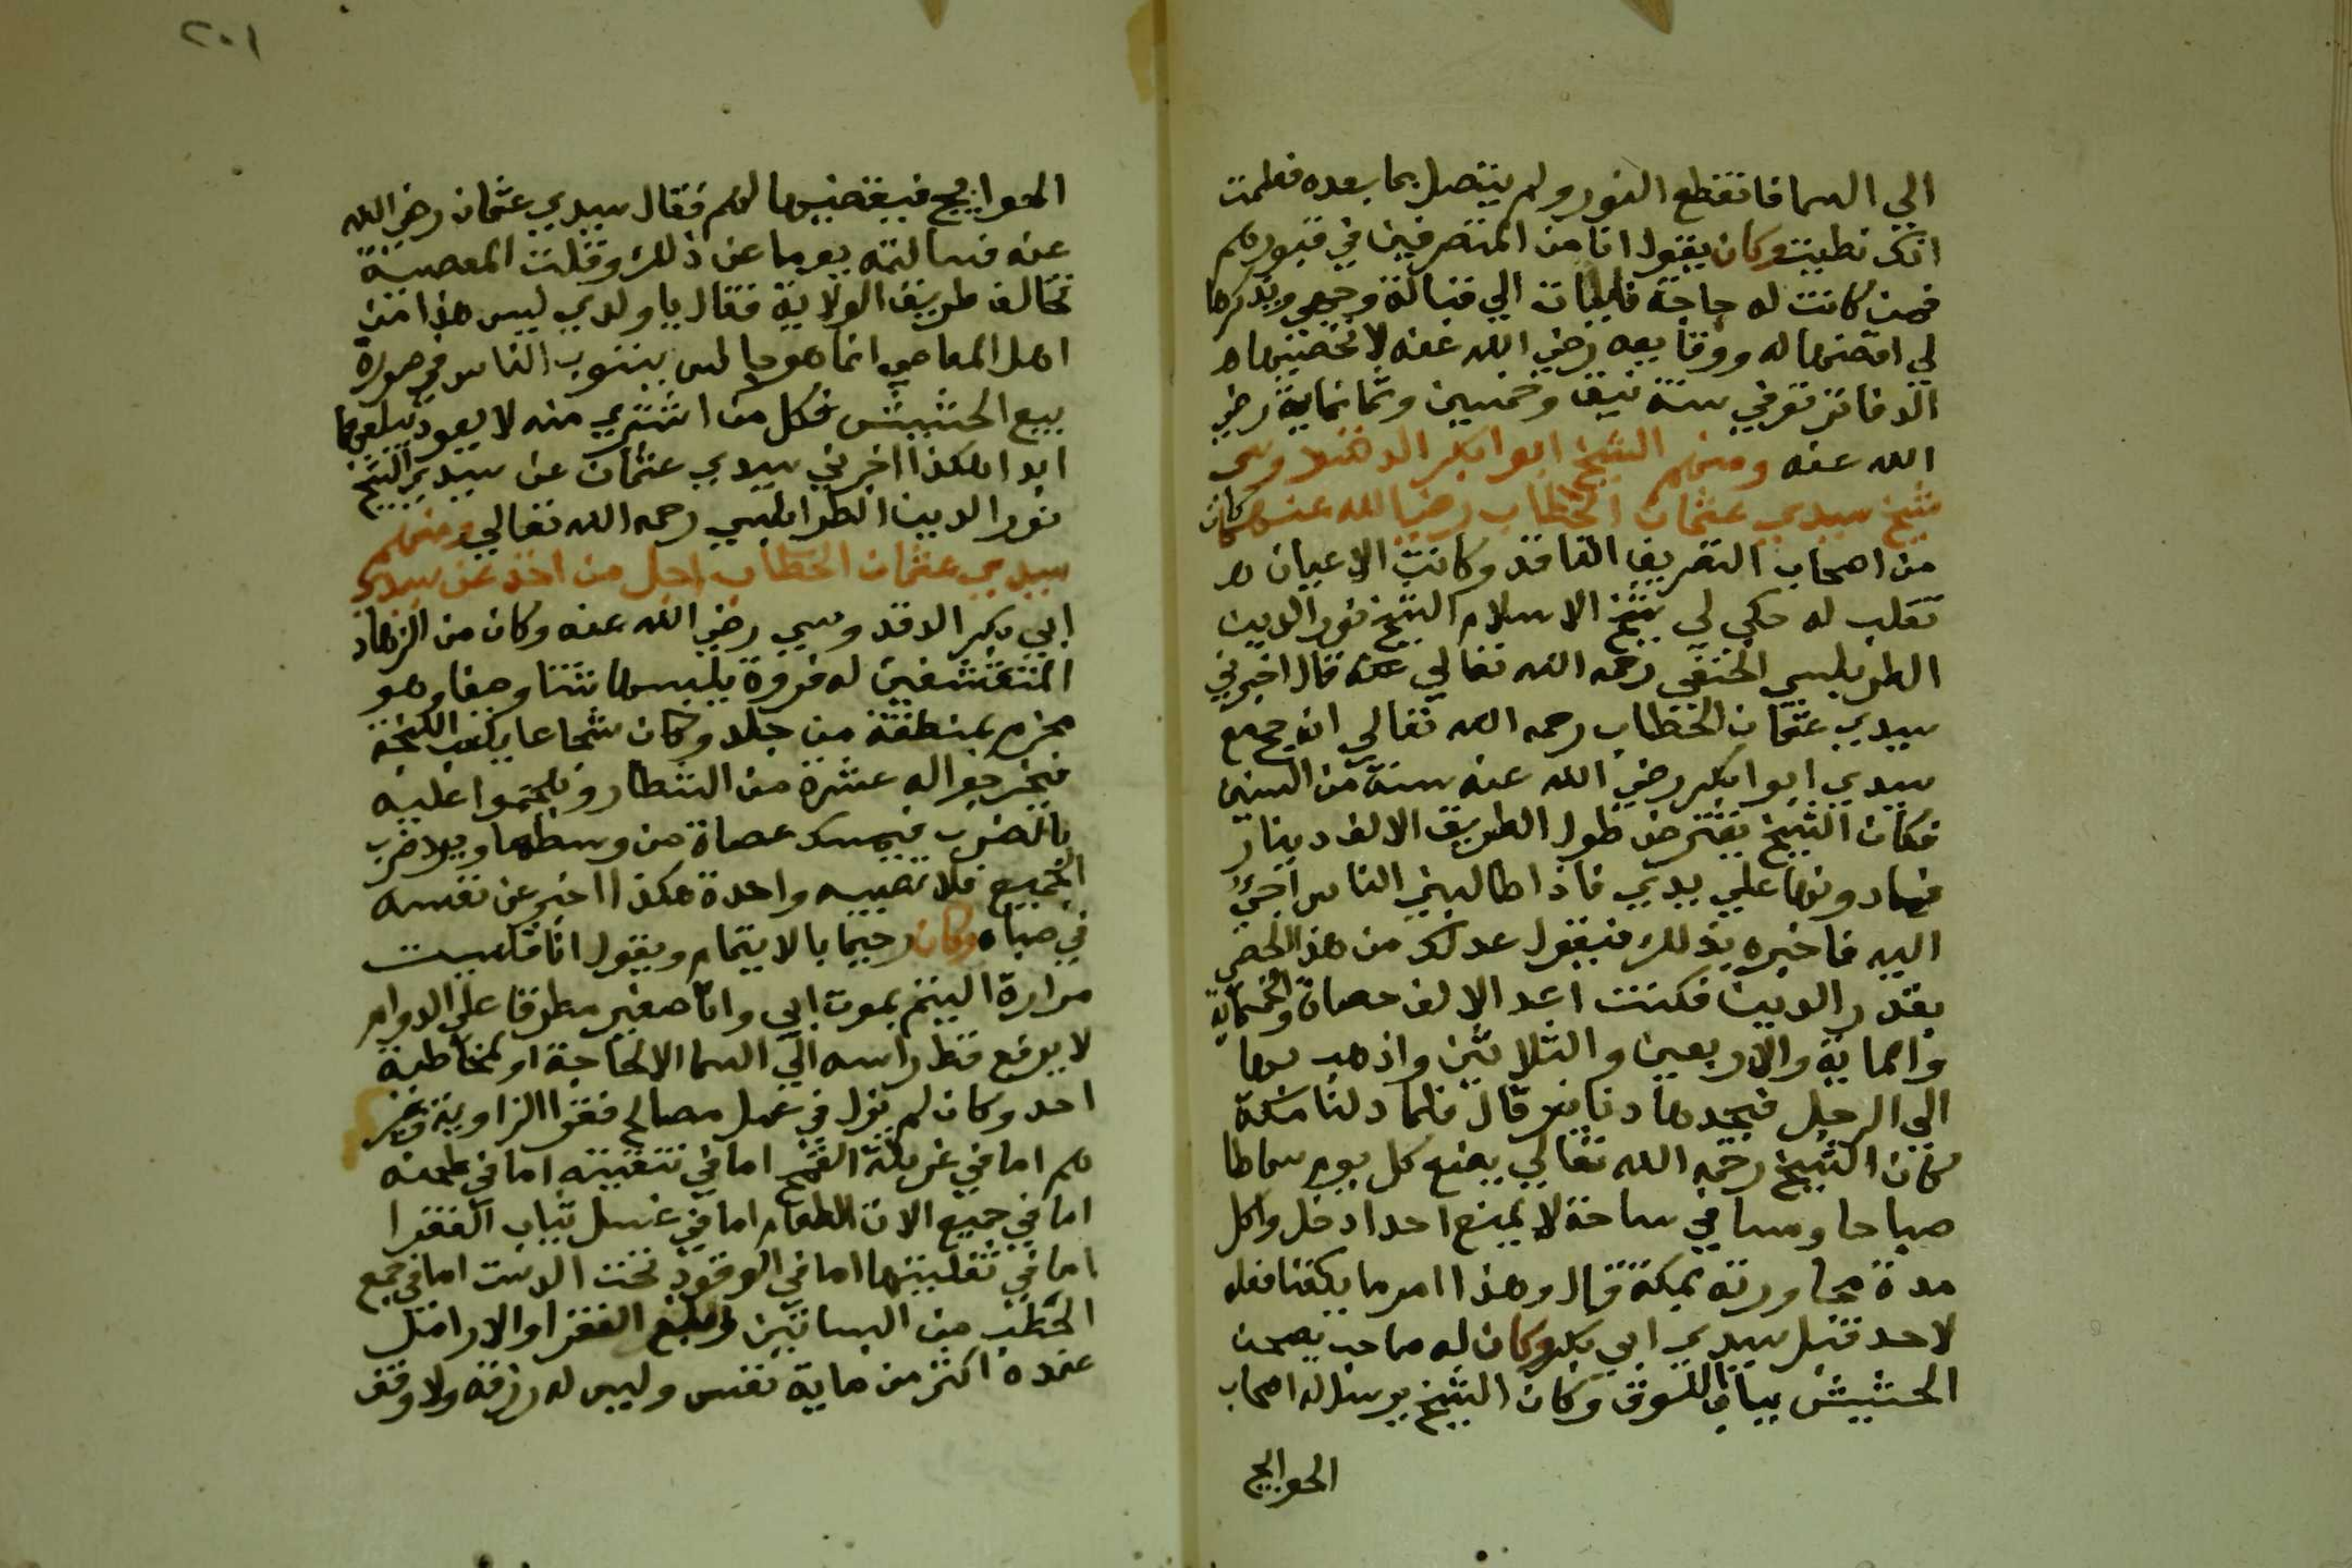 الي السما فانقطع النور ولم يتصل بما بعده فعلمت
انك نطيت وكان يقول انا من المتصرفين في قبورهم
فمن كانت له حاجة فليات الي قبالة وجهي ويذكرها
لي اقضها له ووقايعه رضي الله عنه لا تحصيها
الدفاتر توفي سنة نيف وخمسين وثمانماية رضي
الله عنه ومنهم الشيخ ابوا بكر الدقدوسي
شيخ سيدي عثمان الخطاب رضي الله عنهما كان
من اصحاب التصريف النافذ وكانت الاعيان
تقلب له حكي لي شيخ الاسلام الشيخ نور الدين
الطربلسي الحنفي رحمه الله تعالي قال اخبرني
سيدي عثمان الخطاب رحمه الله تعالي انه حج مع
سيدي ابوا بكر رضي الله عنه سنة من السنين
فكان الشيخ يقترض طول الطريق الالف دينار
فما دونها علي يدي فاذا طالبني الناس اجئ
اليه فاخبره بذلك فيقول عد لك من هذا الحصي
بقدر الدين فكنت اعد الالف حصاة والخمسماية
والماية والاربعين والثلاثين واذهب بها
الي الرجل فيجدها دنانير قال فلما دخلنا مكة
كان الشيخ رحمه الله تعالي يضع كل يوم سماطا
صباحا ومسا في ساحة لا يمنع احدا دخل واكل
مدة مجاورته بمكة قال وهذا امر ما بلغنا فعله
لاحد قبل سيدي ابي بكر وكان له صاحب يصحن
الحشيش بباب اللوق وكان الشيخ يرسل له اصحاب
الحوايج
٢٠١
الحوايج فيقضيها لهم فقال سيدي عثمان رضي الله
عنه فسالته يوما عن ذلك وقلت المعصية
تخالف طريق الولاية فقال يا ولدي ليس هذا من
اهل المعاصي انما هو جالس يتوب الناس في صورة
بيع الحشيش فكل من اشتري منه لا يعود يبلعها
ابدا هكذا اخبرني سيدي عثمان عن سيدي الشيخ
نور الدين الطرابلسي رحمه الله تعالي ومنهم
سيدي عثمان الخطاب اجل من اخذ عن سيدي
ابي بكر الدقدوسي رضي الله عنه وكان من الزهاد
المتقشفين له فروة يلبسها شتا وصيفا وهو
محزم بمنطقة من جلد وكان شجاعا يلعب اللبخة
فيخرجوا له عشرة من الشطار ويهجموا عليه
بالضرب فيمسك عصاة من وسطها ويرد ضرب
الجميع فلا تصيبه واحدة هكذا اخبر عن نفسه
في صباه وكان رحيما بالايتام ويقول انا قاسيت
مرارة اليتم بموت ابي وانا صغير مطرقا علي الدوام
لا يرفع قط راسه الي السما الا لحاجة او لمخاطبة
احد وكان لم يزل في عمل مصالح فقرا الزاوية وغير
هم اما في غربلة القمح اما في تنقيته اما في طحنه
اما في جميع الات الطعام اما في غسل ثياب الفقرا
اما في تفليتها اما في الوقود تحت الدست اما في جمع
الحطب من البساتين الفقرا والارامل
عنده اكثر من ماية نفس وليس له رزقة ولا وقف